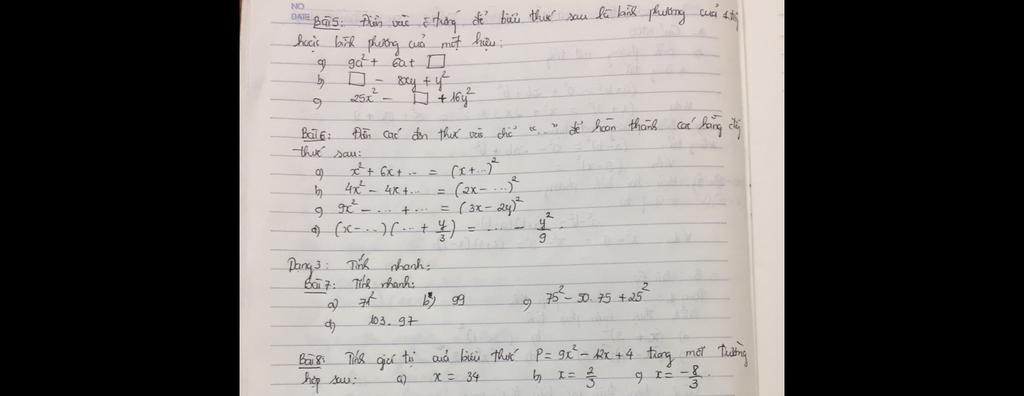 NO
DATE
Bài 5: Điền vào ô trống để biểu thức sau là bình phương của 1 tổng
hoặc bình phương của một hiệu:
a) 9a² + 6a + □
b) □ - 8xy + y²
c) 25x² - □ + 16y²
Bài 6: Điền các đơn thức vào chỗ "..." để hoàn thành các hằng đẳng
thức sau:
a) x² + 6x + ... = (x + ...)²
b) 4x² - 4x + ... = (2x - ...)²
c) 9x² - ... + ... = (3x - 2y)²
d) (x - ...)(... + y/3) = ... - y²/9
Dạng 3: Tính nhanh:
Bài 7: Tính nhanh:
a) 71² b) 99 c) 75² - 50.75 + 25²
d) 103.97
Bài 8: Tính giá trị của biểu thức P = 9x² - 12x + 4 trong mỗi trường
hợp sau: a) x = 34 b) x = 2/3 c) x = -8/3.